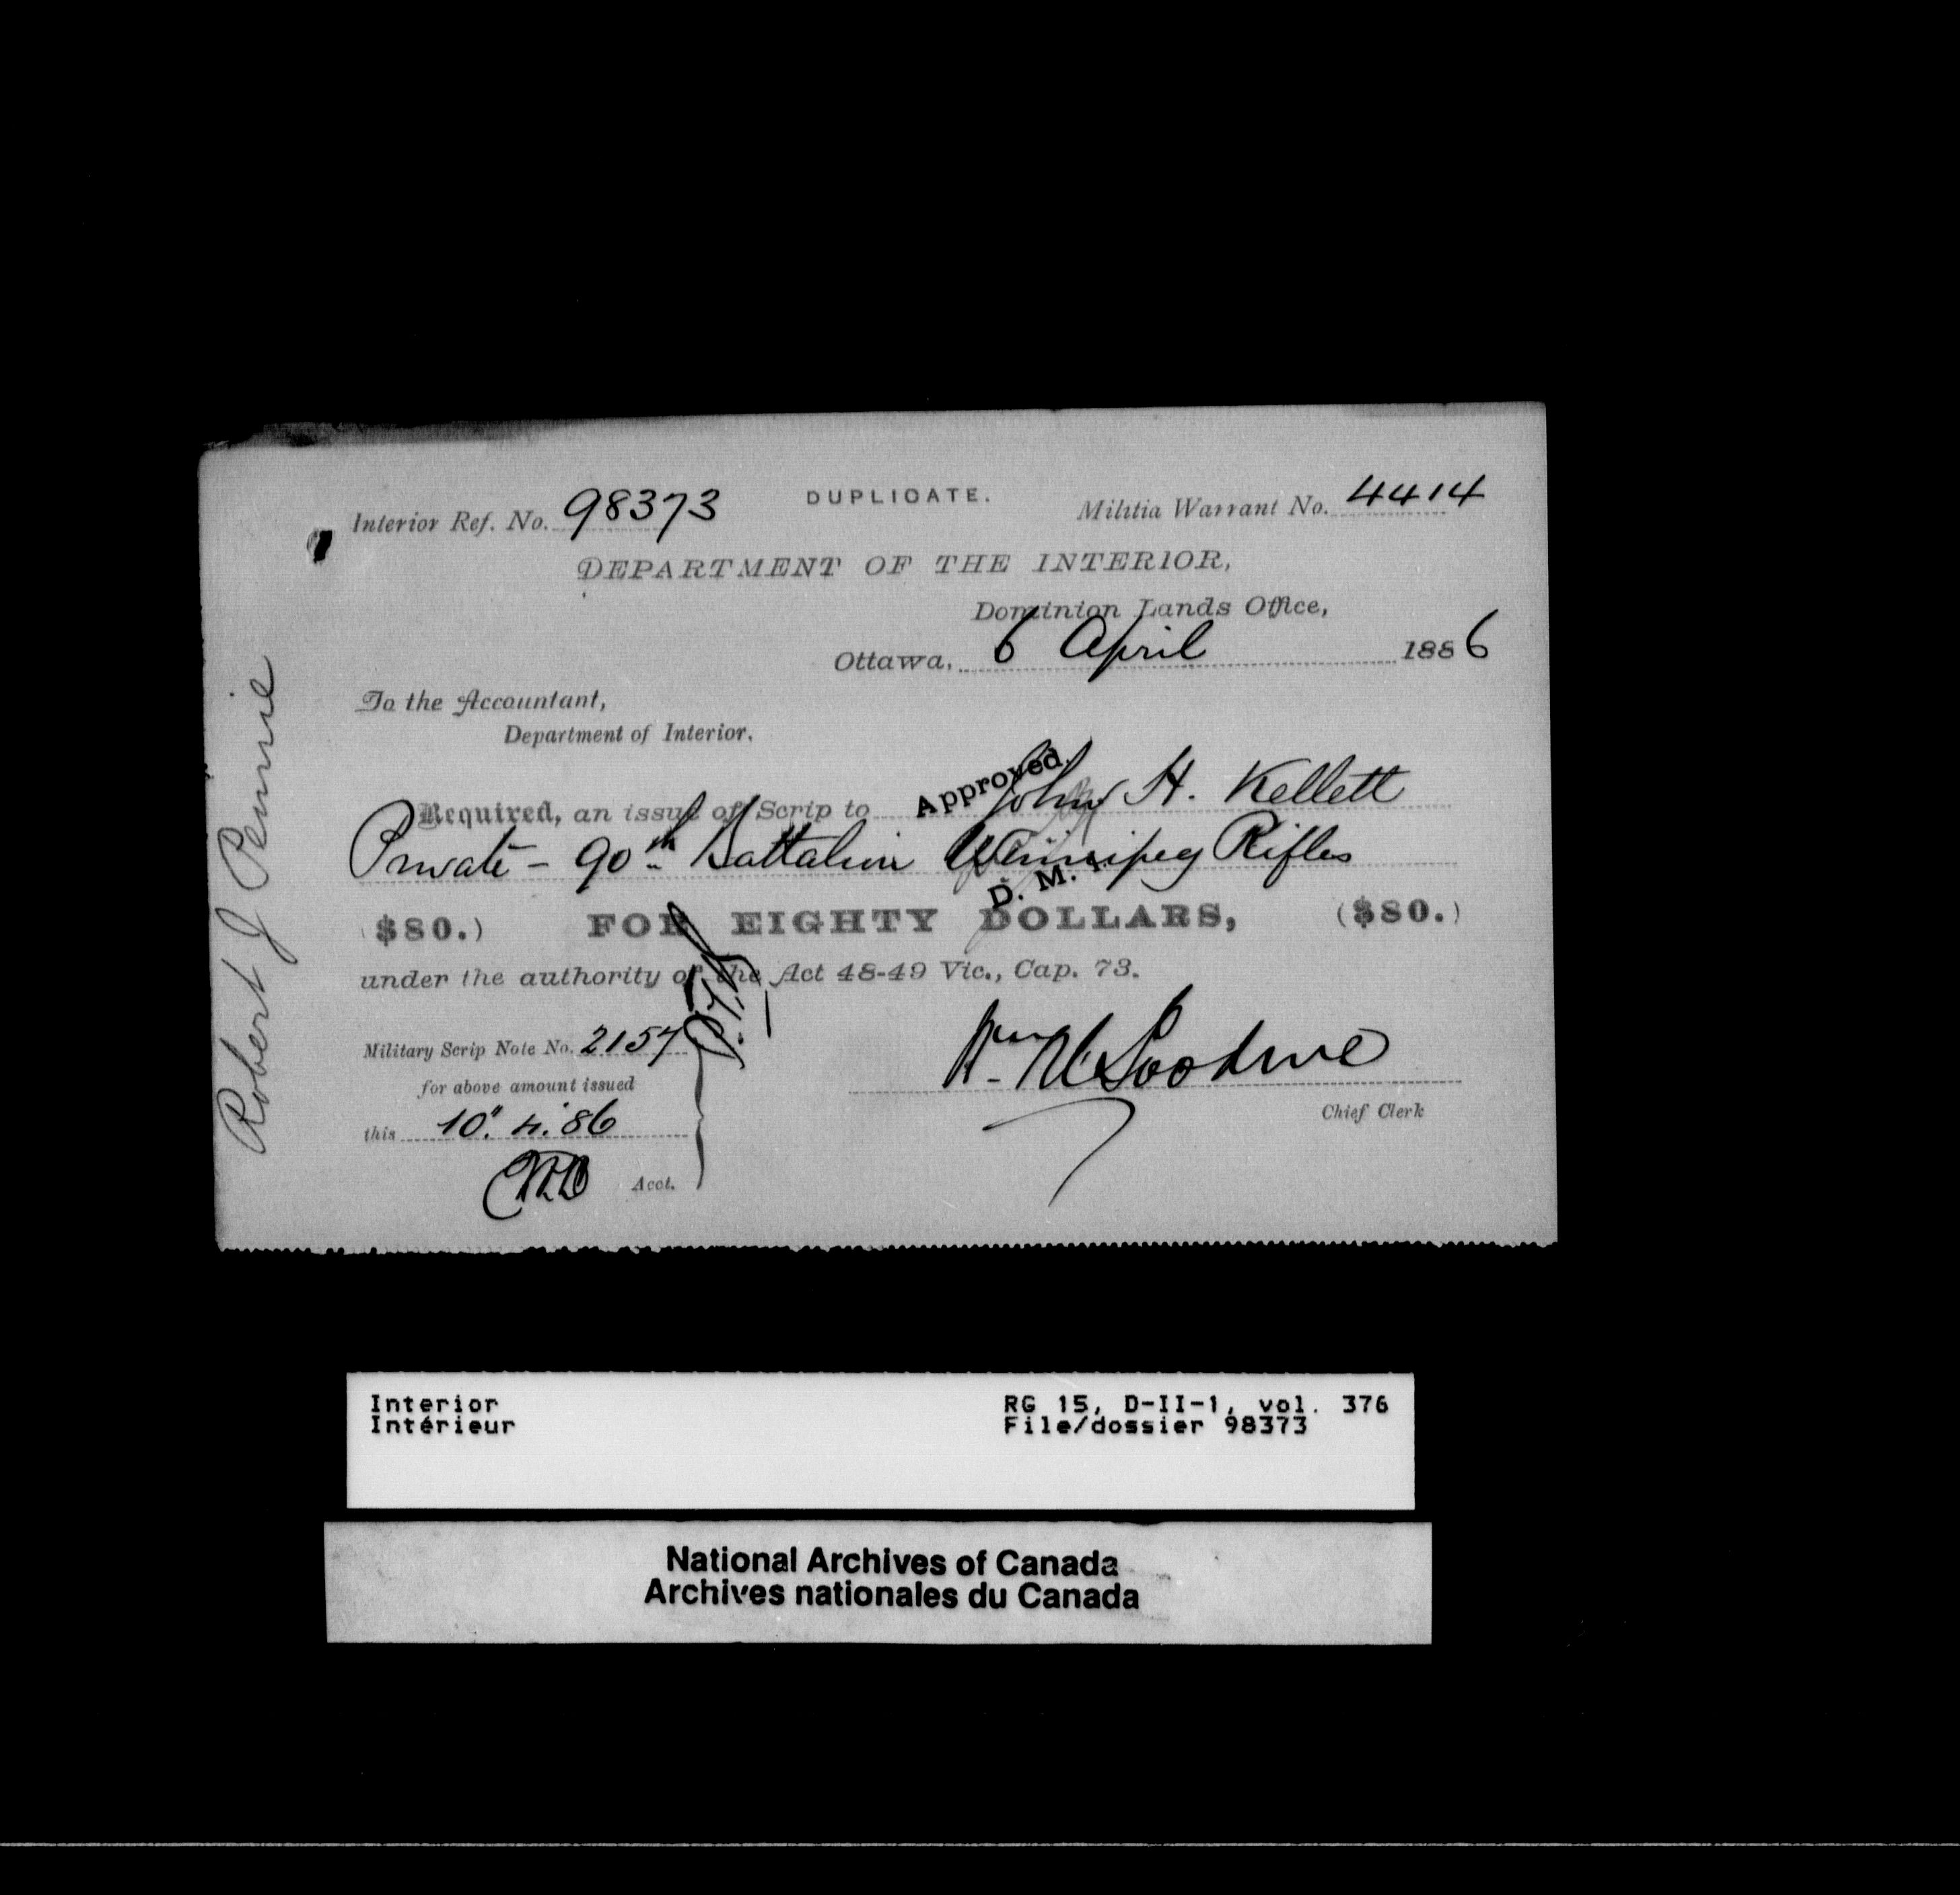 Interior Ref. No. 98373
DUPLICATE.
Militia Warrant No. 4414
DEPARTMENT OF THE INTERIOR,
Dominion Lands Office,
Ottawa, 6 April 1886
To the Accountant,
Department of Interior.
Approved.
Required, an issue of Scrip to John H. Kellett
Private - 90th Battalion Winnipeg Rifles
D. M. I.
($80.) FOR EIGHTY DOLLARS, ($80.)
under the authority of the Act 48-49 Vic., Cap. 73.
Military Scrip Note No. 2157
for above amount issued
this 10". 4.' 86
Acct.
Wm
Chief Clerk
Robert J Pennie
Interior
Intérieur
RG 15, D-II-1, vol. 376
File/dossier 98373
National Archives of Canada
Archives nationales du Canada